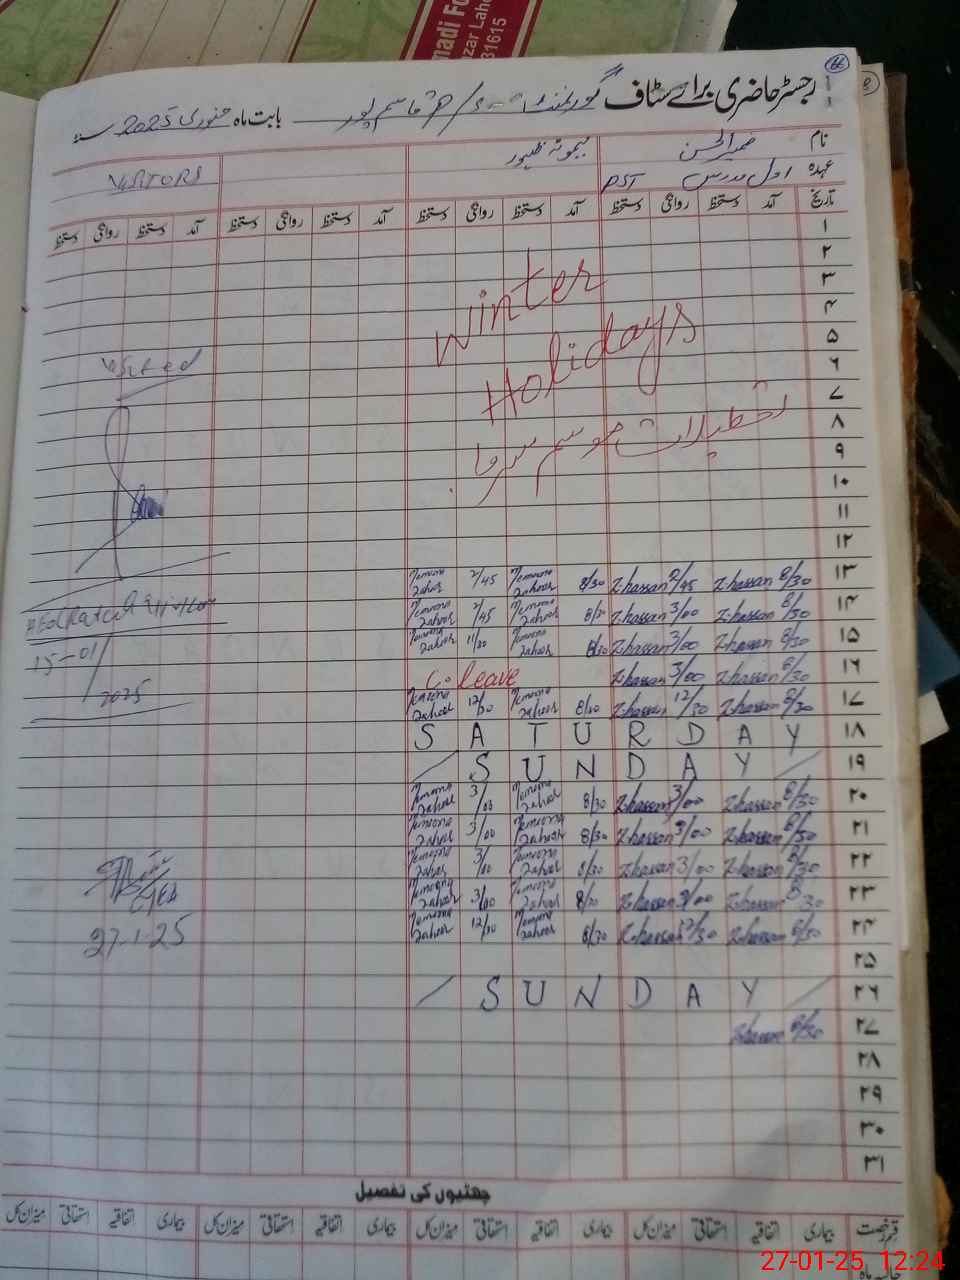 madi Fo
zar Laho
31615
رجسٹر حاضری برائے سٹاف گورنمنٹ قاسم پور بابت ماہ جنوری 2025 سنہ
نام ضمیر الحسن میمونہ ظہور
عہدہ اول مدرس PST VISITORS
تاریخ آمد دستخط روانگی دستخط آمد دستخط روانگی دستخط آمد دستخط روانگی دستخط آمد دستخط روانگی دستخط
۱
۲
۳
۴
۵
۶
۷
۸
۹
۱۰
۱۱
۱۲
Winter
Holidays
تعطیلات موسم سرما
Visited
۱۳ 8/30 Z.hassan 2/45 Z.hassan 8/30 Memoona Zahoor 2/45 Memoona Zahoor
۱۴ 8/30 Z.hassan 3/00 Z.hassan 8/30 Memoona Zahoor 2/45 Memoona Zahoor
۱۵ 8/30 Z.hassan 3/00 Z.hassan 8/30 Memoona Zahoor 11/30 Memoona Zahoor
۱۶ 8/30 Z.hassan 3/00 Z.hassan C. leave
۱۷ 8/30 Z.hassan 12/30 Z.hassan 8/30 Memoona Zahoor 12/30 Memoona Zahoor
15-01/
2025
۱۸ SATURDAY
۱۹ SUNDAY
۲۰ 8/30 Z.hassan 3/00 Z.hassan 8/30 Memoona Zahoor 3/00 Memoona Zahoor
۲۱ 8/30 Z.hassan 3/00 Z.hassan 8/30 Memoona Zahoor 3/00 Memoona Zahoor
۲۲ 8/30 Z.hassan 3/00 Z.hassan 8/30 Memoona Zahoor 3/00 Memoona Zahoor
۲۳ 8/30 Z.hassan 3/00 Z.hassan 8/30 Memoona Zahoor 3/00 Memoona Zahoor
۲۴ 8/30 Z.hassan 12/30 Z.hassan 8/30 Memoona Zahoor 12/30 Memoona Zahoor
27-1-25
۲۵
۲۶ SUNDAY
۲۷ 8/30 Z.hassan
۲۸
۲۹
۳۰
۳۱
چھٹیوں کی تفصیل
قسم رخصت بیماری اتفاقیہ استحقاقی میزان کل بیماری اتفاقیہ استحقاقی میزان کل بیماری اتفاقیہ استحقاقی میزان کل بیماری اتفاقیہ استحقاقی میزان کل
27-01-25 12:24